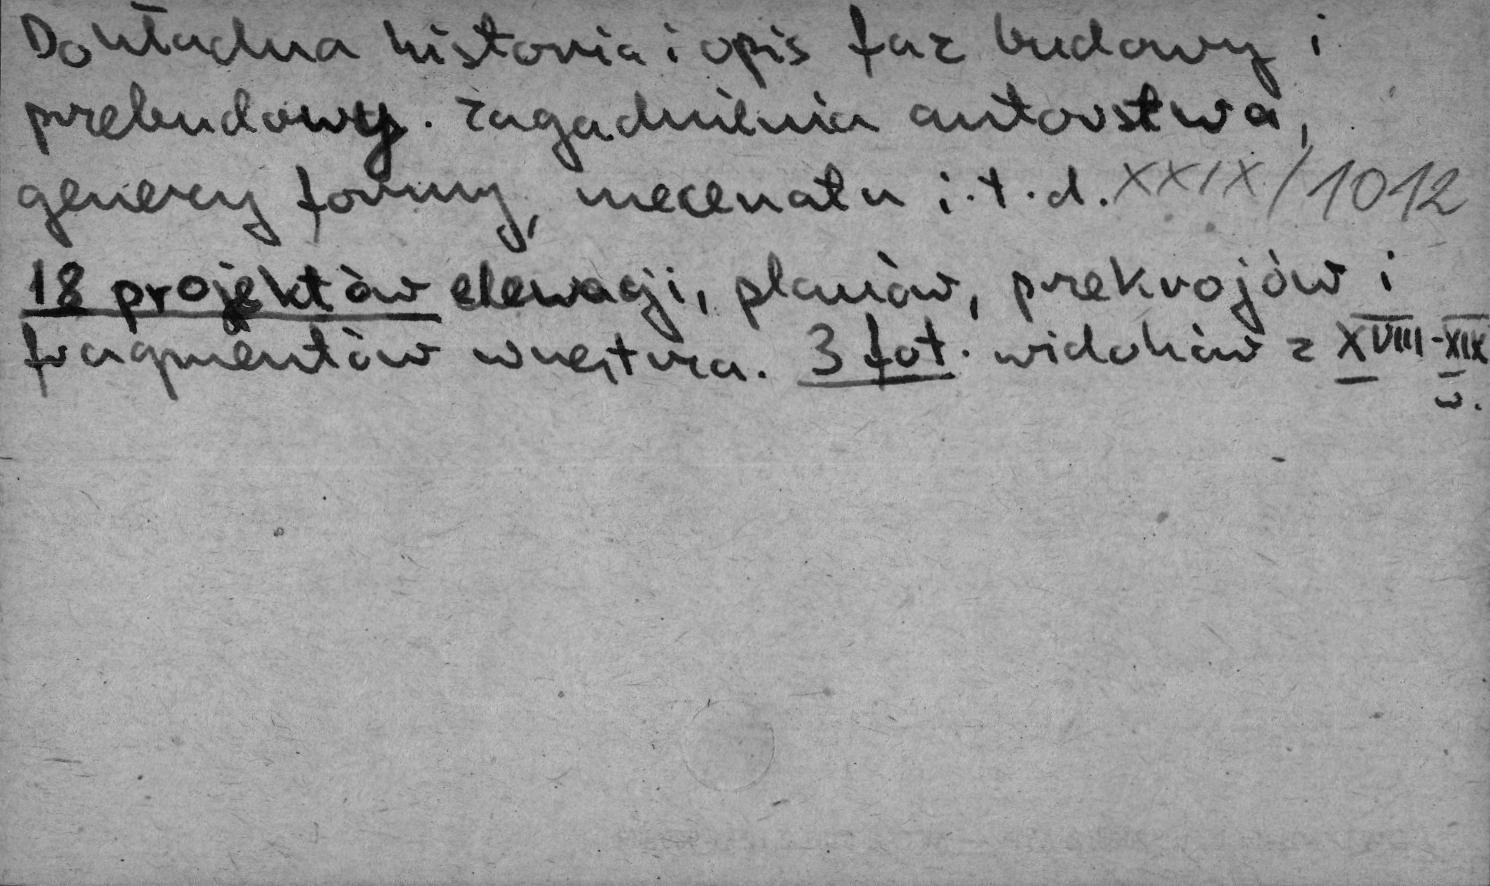 Dokładna historia i opis faz budowy i
przebudowy. Zagadnienia autorstwa,
genezy formy, mecenatu i.t.d. XXIX/1012
18 projektów elewacji, planów, przekrojów i
fragmentów wnętrza. 3 fot. widoków z XVIII-XIX
w.